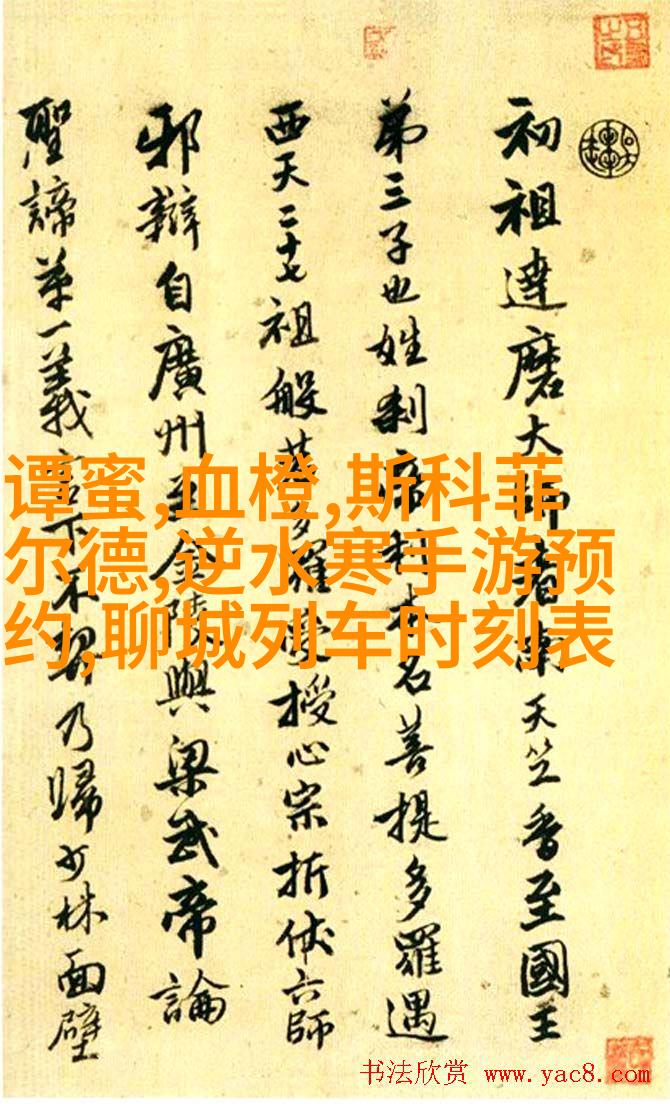 初祖達磨大師者南天竺香至國王
苐三子也姓刹帝利本名菩提多羅遇
西天二十七祖般若多羅授心宗折伏六師
邪辯自廣州至金陵與梁武帝論
聖諦苐一義言下不契乃歸少林面壁
谭蜜,血橙,斯科菲
尔德,逆水寒手游预
约,聊城列车时刻表
书法欣赏 www.yac8.com